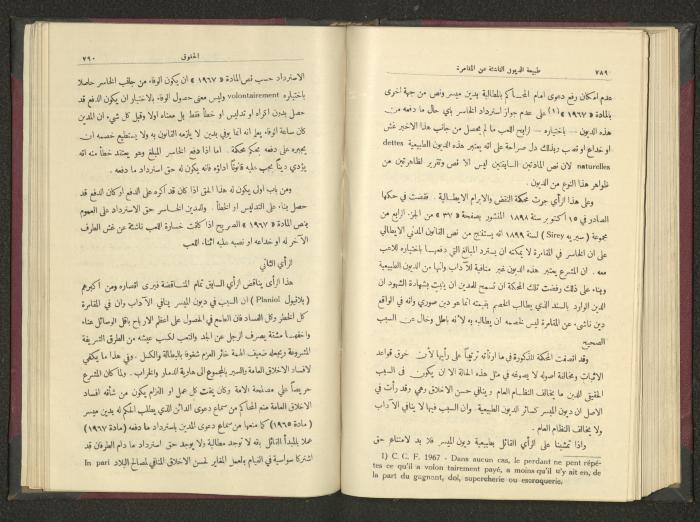 ٧٨٩ طبيعة الديون الناشئة عن المقامرة
عدم امكان رفع دعوى امام المحاكم بالمطالبة بدين ميسر ونص من جهة اخرى
بالمادة « ١٩٦٧ » (١) على عدم جواز استرداد الخاسر باي حال ما دفعه من
هذه الديون — باختياره — لرابح اللعب ما لم يحصل من جانب هذا الاخير غش
او خداع او نصب وبذلك دل صراحة على انه يعتبر هذه الديون الطبيعية dettes
naturelles لان نص المادتين السابقتين ليس الا نص وتقرير لظاهرتين من
ظواهر هذا النوع من الديون .
وعلى هذا الرأي جرت محكمة النقض والابرام الايطالية . فقضت في حكمها
الصادر في ١٥ اكتوبر سنة ١٨٩٨ المنشور بصفحة « ٣٧ » من الجزء الرابع من
مجموعة ( سيريه Sirey ) لسنة ١٨٩٩ انه يستنتج من نص القانون المدني الايطالي
على ان الخاسر في المقامرة لا يمكنه ان يسترد المبالغ التي دفعها باختياره للاعب
معه . ان المشرع يعتبر هذه الديون غير منافية للآداب وانها من الديون الطبيعية
وبناء على ذلك رفضت تلك المحكمة ان تسمح للمدين ان يثبت بشهادة الشهود ان
الدين الوارد بالسند الذي يطالب الخصم بقيمته انما هو دين صوري وانه في الواقع
دين ناشىء عن المقامرة ليس لخصمه ان يطالبه به لانه باطل وخال من السبب
الصحيح
وقد انصفت المحكمة المذكورة في ما ارتأته ترتيبًا على رأيها لأن خرق قواعد
الاثبات ومخالفة اصوله لا يسوغه في مثل هذه الحالة الا ان يكون في السبب
الحقيقي الدين ما يخالف النظام العام وينافي حسن الاخلاق وهي وقد رأت في
الاصل ان ديون الميسر كسائر الديون الطبيعية وان السبب فيها لا ينافي الآداب
ولا يخالف النظام العام .
واذا تمشينا على الرأي القائل بطبيعية ديون الميسر فلا بد لامتناع حق
1) C. C. F. 1967 - Dans aucun cas, le perdant ne pent répé-
tes ce qu'il a volon tairement payé, a moins qu'il u'y ait en, de
la part du gagnant, dol, supercherie ou escroquerie.
الحقوق ٧٩٠
الاسترداد حسب نص المادة « ١٩٦٧ » ان يكون الوفاء من جانب الخاسر حاصلا
باختياره volontairement وليس معنى حصول الوفاء بالاختيار ان يكون الدفع قد
حصل بدون اكراه او تدليس او خطأ فقط بل معناه اولا وقبل كل شيء ان المدين
كان ساعة الوفاء يعلم انه انما يوفي بدين لا يلزمه القانون به ولا يستطيع خصمه ان
يجبره على دفعه بحكم محكمة . اما اذا دفع الخاسر المبلغ وهو يعتقد خطأ منه انه
يؤدي دينًا يجب عليه قانونًا اداؤه فانه يكون له حق استرداد ما دفعه .
ومن باب اولى يكون له هذا الحق اذا كان قد اكره على الدفع او كان الدفع قد
حصل بناء على التدليس او الخطأ . وللمدين الخاسر حق الاسترداد على العموم
بنص المادة « ١٩٦٧ » الصريح اذا كانت خسارة اللعب ناشئة عن غش الطرف
الآخر له او خداعه او نصبه عليه اثناء اللعب
الرأي الثاني
هذا الرأى يناقض الرأي السابق تمام المناقضة فيرى انصاره ومن اكبرهم
( بلانيول Planiol ) ان السبب في ديون الميسر ينافي الآداب وان في المقامرة
كل الخطر وكل الفساد فان الطامع في الحصول على اعظم الارباح باقل الوسائل عناء
واخفها مشقة يصرف الرجل عن الجد والتعب لكسب عيشه من الطرق الشريفة
المشروعة ويجعله ضعيف الهمة خائر العزم شغوفا بالبطالة والكسل . وفي هذا ما يكفي
لافساد الاخلاق العامة والسير بالمجموع الى هاوية الدمار والخراب . ولما كان المشرع
حريصاً على مصلحة الامة وكان يمقت كل عمل او التزام يكون من شأنه افساد
الاخلاق العامة منع المحاكم من سماع دعوى الدائن الذي يطلب الحكم له بدين ميسر
( مادة ١٩٦٥ ) كما منعها من سماع دعوى المدين باسترداد ما دفعه (مادة ١٩٦٧ )
عملا بالمبدأ القائل بانه لا توجد مطالبة ولا يوجد حق استرداد ما دام الطرفان قد
اشتركا سواسية في القيام بالعمل المغاير لحسن الاخلاق المنافي لمصالح البلاد In pari